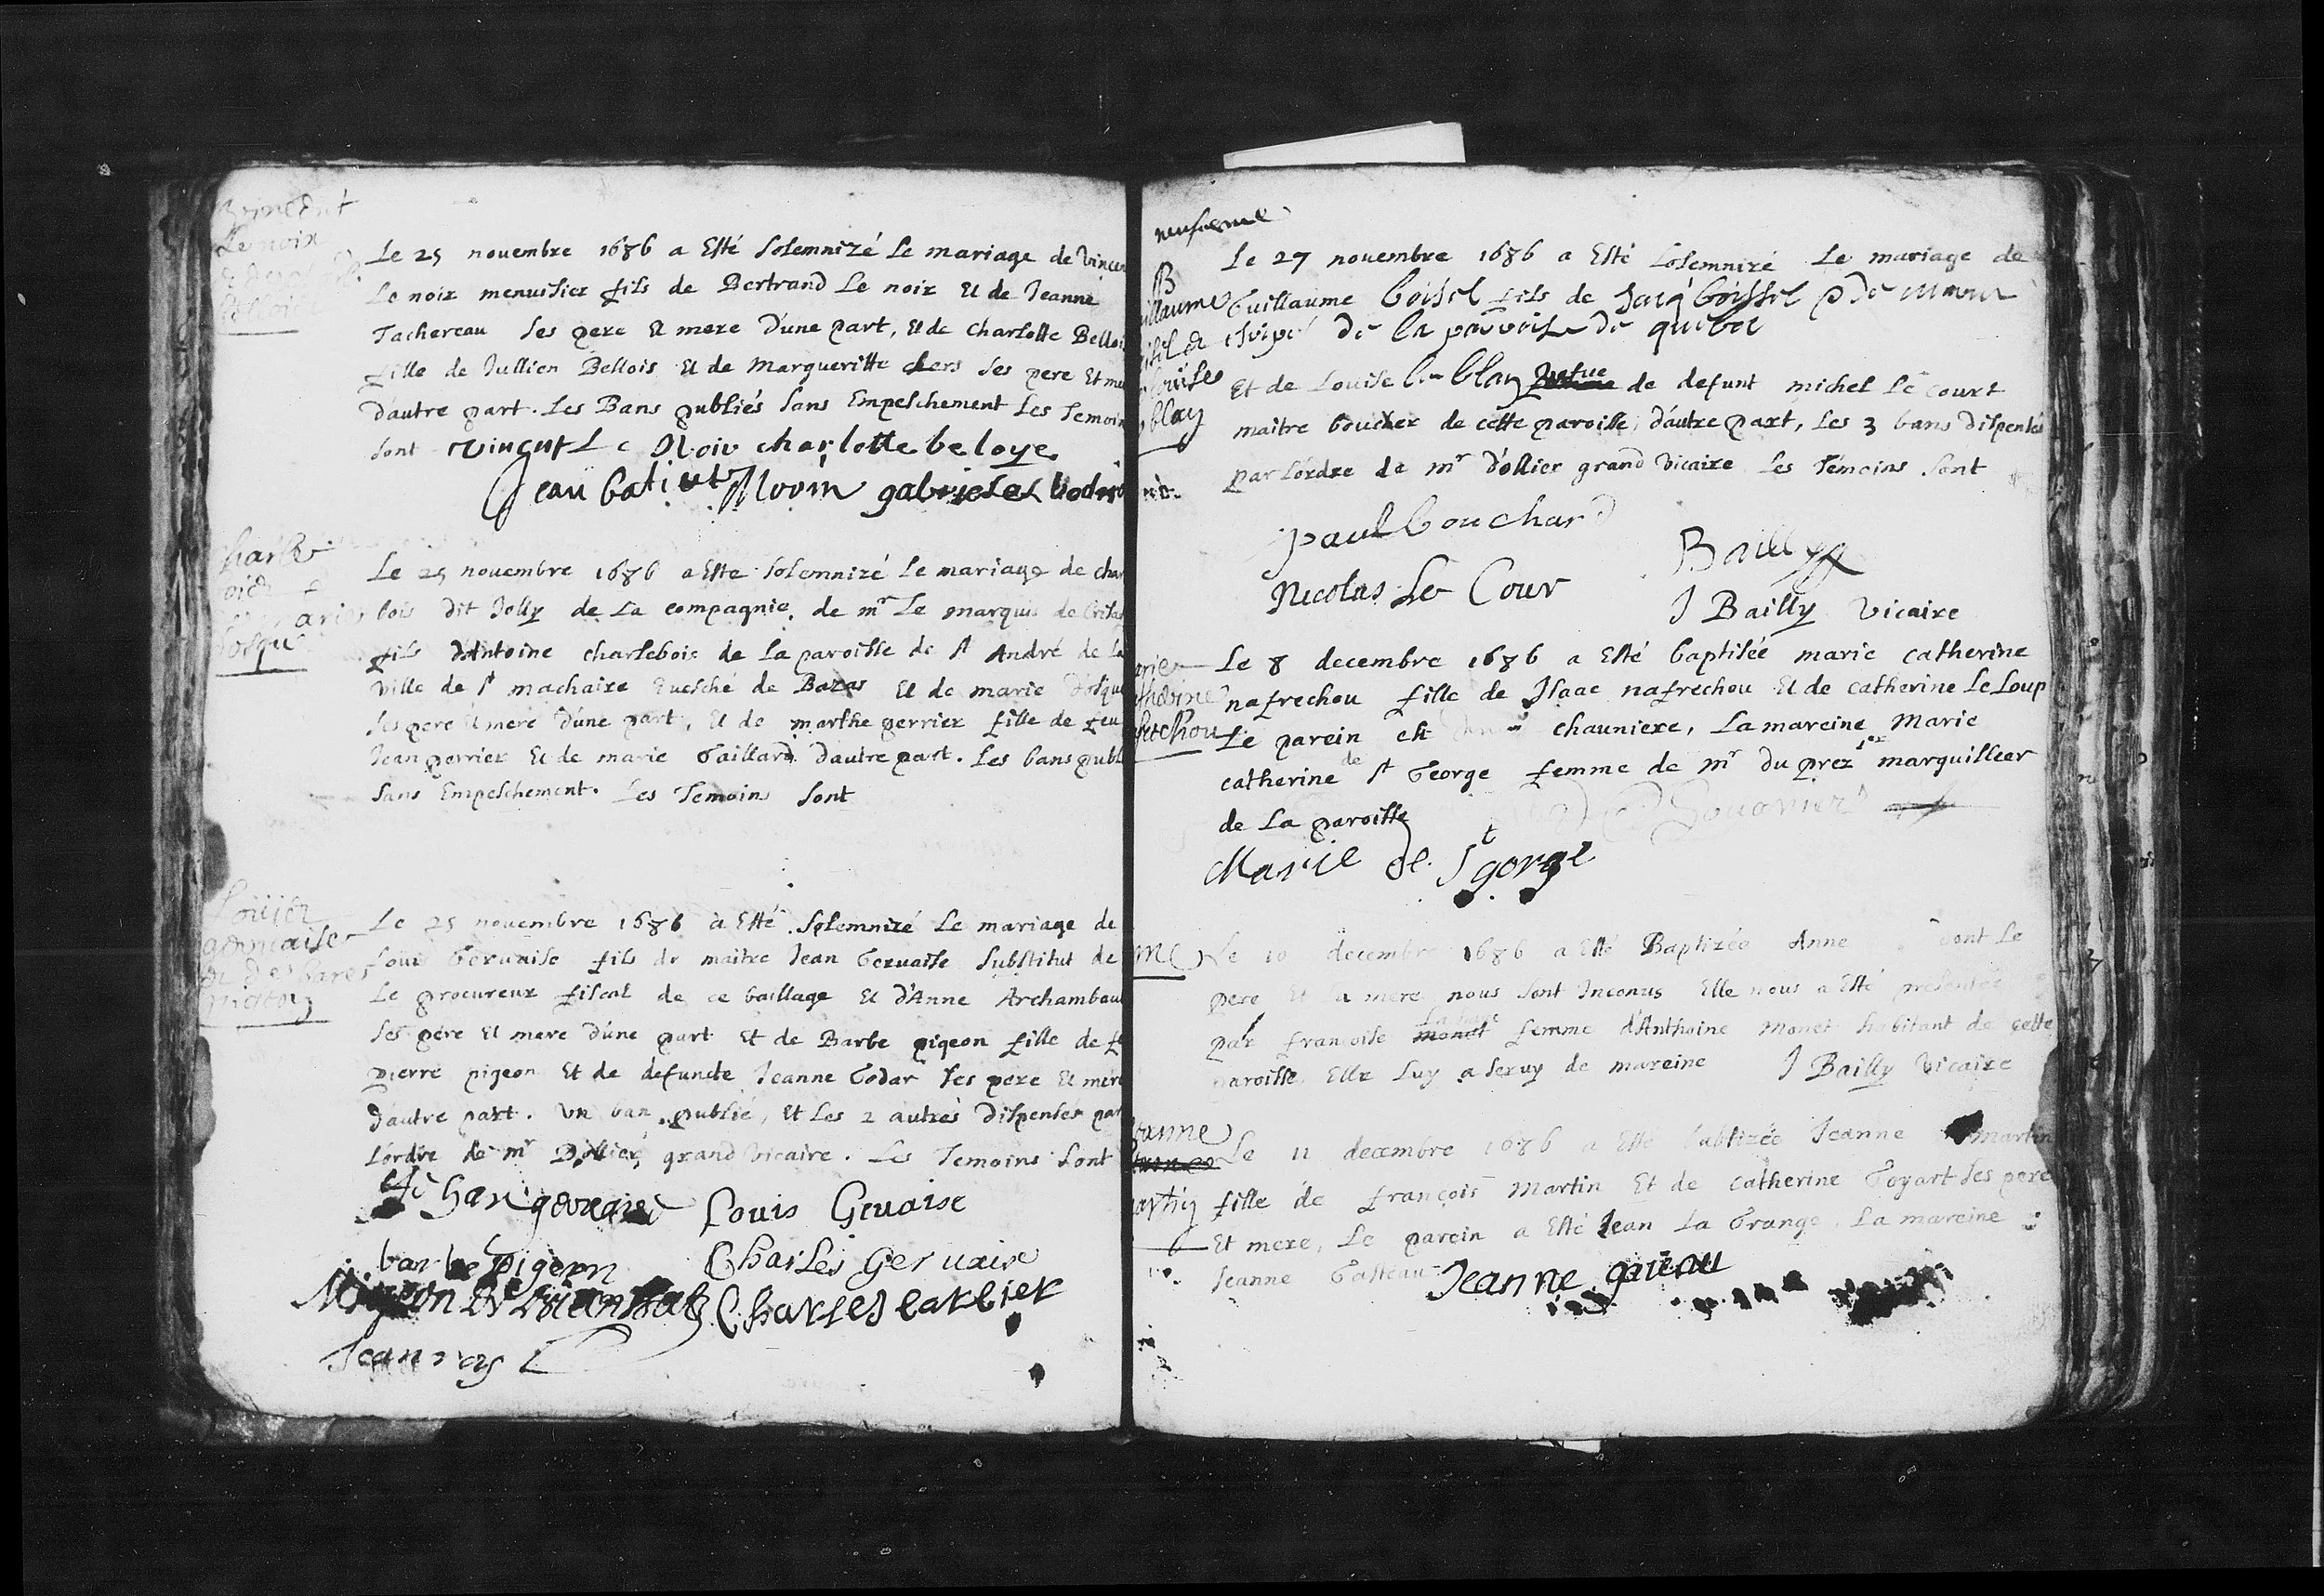 Le noir
Le 25 novembre 1686 a Esté solemnizé Le mariage de Vincen
Le noir menuisier fils de Bertrand Le noir Et de Jeanne
Tachereau ses pere Et mere d'une part, Et de charlotte Belloi
fille de Jullien Bellois Et de Margueritte chers ses pere Et me
d'autre part. Les Bans publiés sans Empeschement Les Temoin
sont vincent Le Noir charlotte beloye
Jean batiut gabrieles
Le 25 novembre 1686 a Este solemnizé Le mariage de char
lois dit Jolly de La compagnie de mr Le marquis de Crisa
fils d'Antoine charlebois de La paroisse de st André de la
ville de st machaire Euesché de Bazas Et de marie dosque
ses pere Et mere d'une part, Et de marthe perrier fille de feu
Jean perrier Et de marie Gaillard d'autre part. Les bans publ
sans Empeschement. Les Temoins sont
Louis
geruaise
pigeon
Le 25 novembre 1686 a Esté solemnizé Le mariage de
Louis Geruaise fils de maitre Jean Geruaise substitut de
Le procureur fiscal de ce baillage Et d'Anne Archambau
ses pere Et mere d'une part Et de Barbe pigeon fille de f
pierre pigeon Et de defuncte Jeanne Godar ses pere Et mere
d'autre part. Un ban publié, Et Les 2 autres dispensés par
L'ordre de mr Dollier grand vicaire. Les Temoins sont
Louis Gervaise
barbe pigeon Charles Gervaise
Migeon De Charles carlier
Le 27 novembre 1686 a Esté solemnizé Le mariage de
Guillaume boisel fils de Jacq boissel
de la paroisse de quebec
Et de Louise le blay vefue de defunt michel Le court
maitre boucher de cette paroisse, d'autre part, Les 3 bans dispensés
par L'ordre de mr d'ollier grand vicaire Les Témoins sont
paul bouchard
Bailly
Nicolas Le Cour
J Bailly vicaire
Le 8 decembre 1686 a Esté baptisée marie catherine
nafrechou fille de Isaac nafrechou Et de catherine Le Loup
Le parein est chauniere, La mareine Marie
catherine de st George femme de mr du prez 1er marquillier
de La paroisse
Marie de St gorge
Le 10 decembre 1686 a Esté Baptizée Anne dont Le
pere Et La mere nous sont Inconus Elle nous a Esté presentée
par francoise monet femme d'Anthoine Monet habitant de cette
paroisse, Elle Luy a seruy de mareine J Bailly vicaire
Le 11 decembre 1686 a Esté babtizée Jeanne Martin
fille de françois Martin Et de catherine Goyart ses pere
Et mere, Le parein a Esté Jean La Grange, La mareine
Jeanne
Jeanne